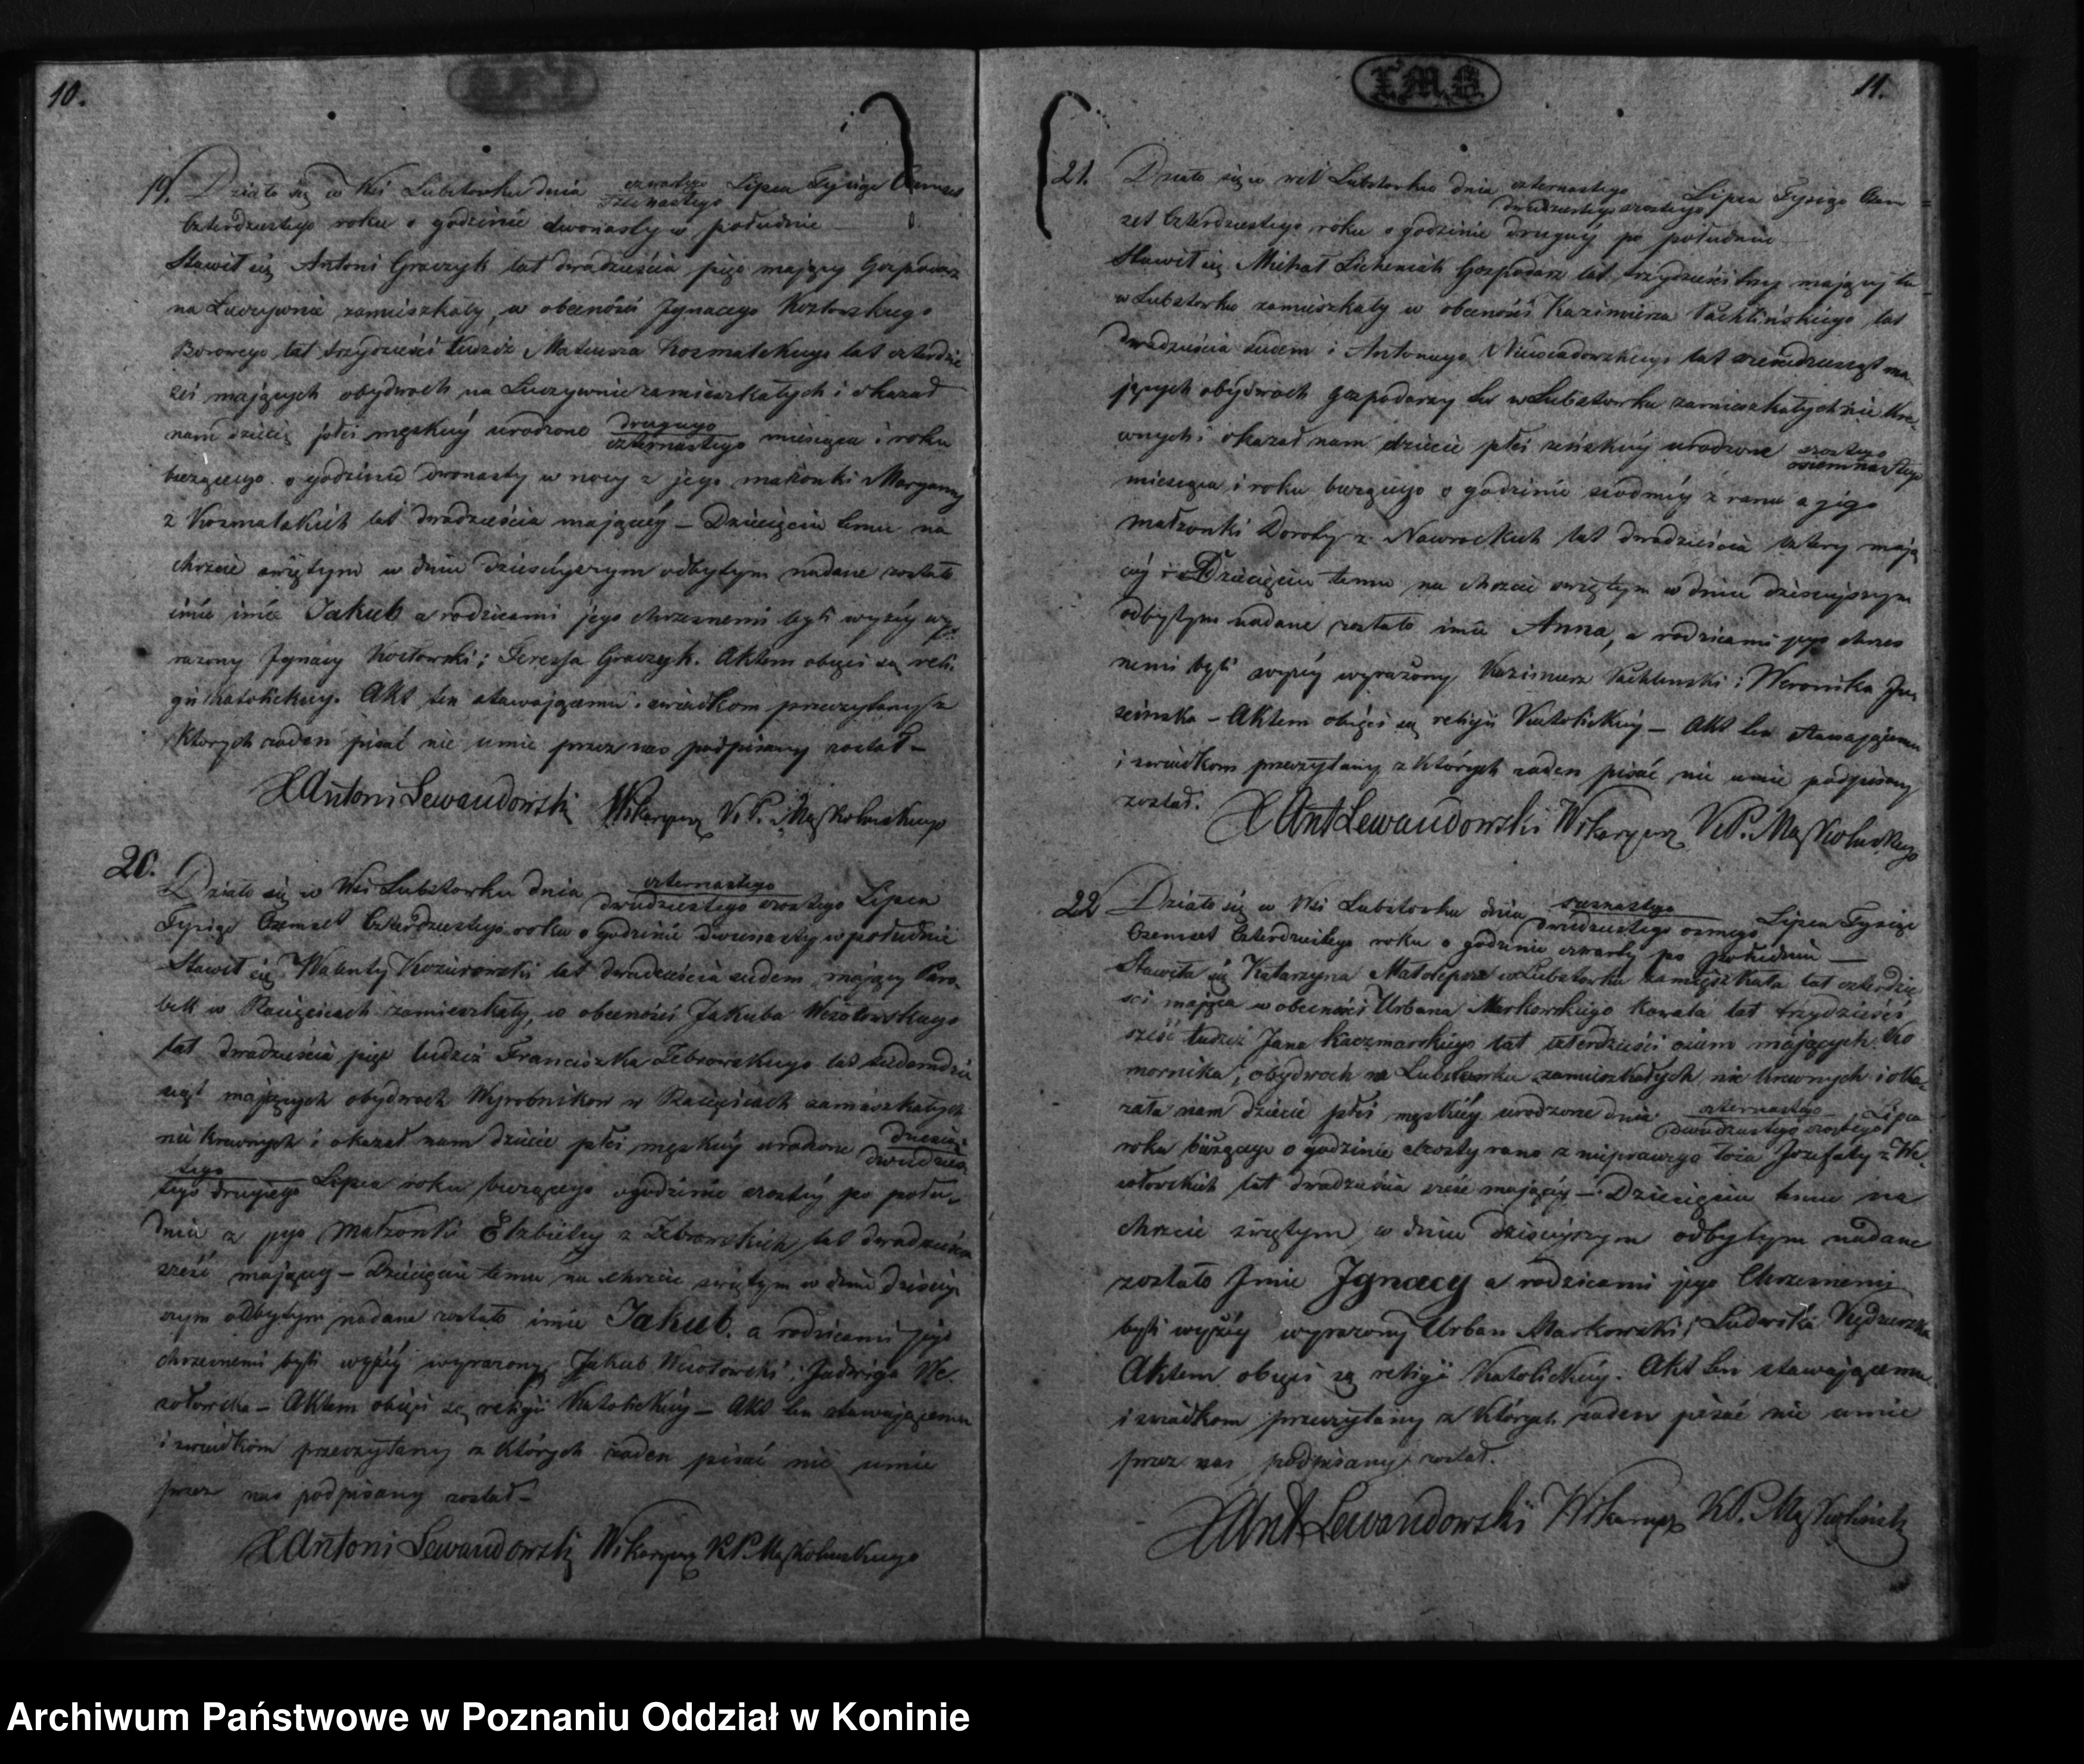 10.
19. Działo się w Wsi Lubstowku dnia czwartego szesnastego Lipca Tysiąc Osmset
Czterdziestego roku o godzinie dwonasty w południe
Stawił się Antoni Graczyk lat dwadzieścia pięc mający Gospodarz
na Luczywnie zamieszkały, w obecności Jgnacego Kozłowskiego
Borowego lat trzydzieści tudzież Mateusza Kozmalskiego lat czterdzie
ści mających obydwoch na Luczywnie zamieszkałych i okazał
nam dziecię płci męskiey urodzone drugiego czternastego miesiąca i roku
bieżącego o godzinie dwonasty w nocy z jego małżonki Maryanny
z Kozmalskich lat dwadzieścia mającey – Dziecięciu temu na
chrzcie świętym w dniu dzisieyszym odbytym nadane zostało
imie imie Jakub a rodzicami jego chrzesnemi byli wyżey wy
rażony Jgnacy Kozłowski i Teressa Graczyk. Aktem objęci są reli
gii katolickiey. Akt ten stawającemu i świadkom przeczytany z
ktorych żaden pisać nie umie przez nas podpisany został –
X Antoni Lewandowski Wikaryusz K. P. Mąkolnickiego
20. Działo się w Wsi Lubstowku dnia czternastego dwudziestego szostego Lipca
Tysiąc Ośmset Czterdziestego roku o godzinie dwunasty w południe
Stawił się Walenty Kozierowski lat dwadzieścia siedem mający Paro
bek w Racięcicach zamieszkały, w obecności Jakuba Wesołowskiego
lat dwadzieścia pięc tudzież Franciszka Zebrowskiego lat siedemdzie
siąt mających obydwoch Wyrobnikow w Racięcicach zamieszkałych
nie krewnych i okazał nam dziecie płci męskiey urodzone dziesią dwudzies
tego tego drugiego Lipca roku bieżącego o godzinie szostey po połu
dniu z jego małżonki Elżbiety z Zebrowskich lat dwadzieścia
sześć mającey – Dziecięciu temu na chrzcie świętym w dniu dzisiey
szym odbytym nadane zostało imie Jakub, a rodzicami jego
chrzesnemi byli wyżey wyrażony Jakub Wesołowski i Jadwiga We
sołowska – Aktem objęci są religii Katolickiey – Akt ten stawającemu
i świadkom przeczytany z ktorych żaden pisać nie umie
przez nas podpisany został –
X Antoni Lewandowski Wikaryusz K P. Mąkolnickiego
11.
21. Działo się w Wsi Lubstowku dnia czternastego dwudziestego szostego Lipca Tysiąc Osm
set Czterdziestego roku o godzinie drugiey po południu
Stawił się Michał Licheniak Gospodarz lat trzydzieści trzy mający tu
w Lubstowku zamieszkały w obecności Kazimierza Pachlińskiego lat
dwadzieścia siedem i Antoniego Niewiadowskiego lat sześćdziesiąt ma
jących obydwoch gospodarzy tu w Lubstowku zamieszkałych nie kre
wnych i okazał nam dziecie płci żeńskiey urodzone szostego osiemnastego
miesiąca i roku bieżącego o godzinie siodmey z rana z jego
małżonki Doroty z Nawrockich lat dwadzieścia cztery mają
cey – Dziecięciu temu na chrzcie świętym w dniu dzisieyszym
odbytym nadane zostało imie Anna, a rodzicami jego chrzes
nemi byli wyżey wyrażony Kazimierz Pachlinski i Weronika
– Aktem objęci są religii Katolickiey – Akt ten stawającemu
i świadkom przeczytany z ktorych żaden pisać nie umie podpisany
został.
X Ant Lewandowski Wikaryusz K P. Mąkolnickiego
22 Działo się w Wsi Lubstowku dnia szesnastego dwudziestego osmego Lipca Tysiąc
Osmset Czterdziestego roku o godzinie czwarty po południu –
Stawiła się Katarzyna Małolepsza w Lubstowku zamieszkała lat czterdzie
ści mająca w obecności Urbana Markowskiego kowala lat trzydzieści
sześć tudzież Jana Kaczmarskiego lat czterdzieści osiem mających ko
mornika, obydwoch na Lubstowku zamieszkałych nie krewnych i oka
zała nam dziecie płci męskiey urodzone dnia czternastego dwudziestego szostego Lipca
roku bieżącego o godzinie szosty rano z nieprawego łoża Jozefaty z We
sołowskich lat dwadzieścia sześć mającey – Dziecięciu temu na
chrzcie świętym w dniu dzisieyszym odbytym nadane
zostało Jmie Jgnacy a rodzicami jego Chrzesnemi
byli wyżey wyrażony Urban Markowski i Ludwika Kędzierska
Aktem objęci są religii Katolickiey. Akt ten stawającemu
i świadkom przeczytany z ktorych żaden pisać nie umie
przez nas podpisany został.
X Ant Lewandowski Wikaryusz K P. Mąkolnicki
Archiwum Państwowe w Poznaniu Oddział w Koninie